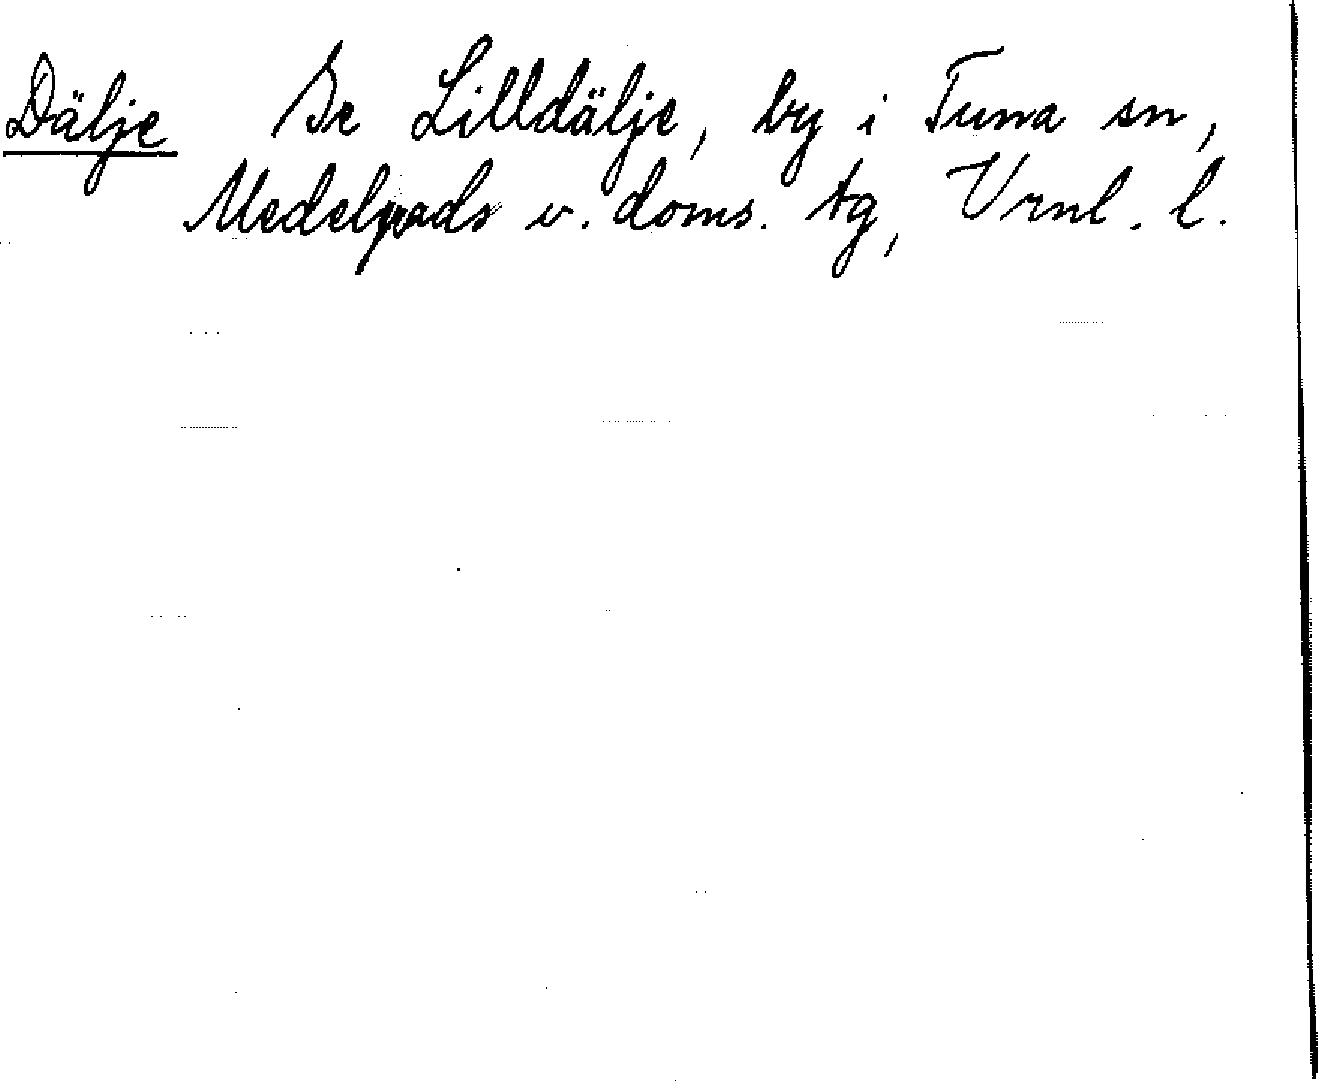 Dälje Se Lilldälje, by i Tuna sn,
Medelpads v. doms. tg, Vrnl. l.